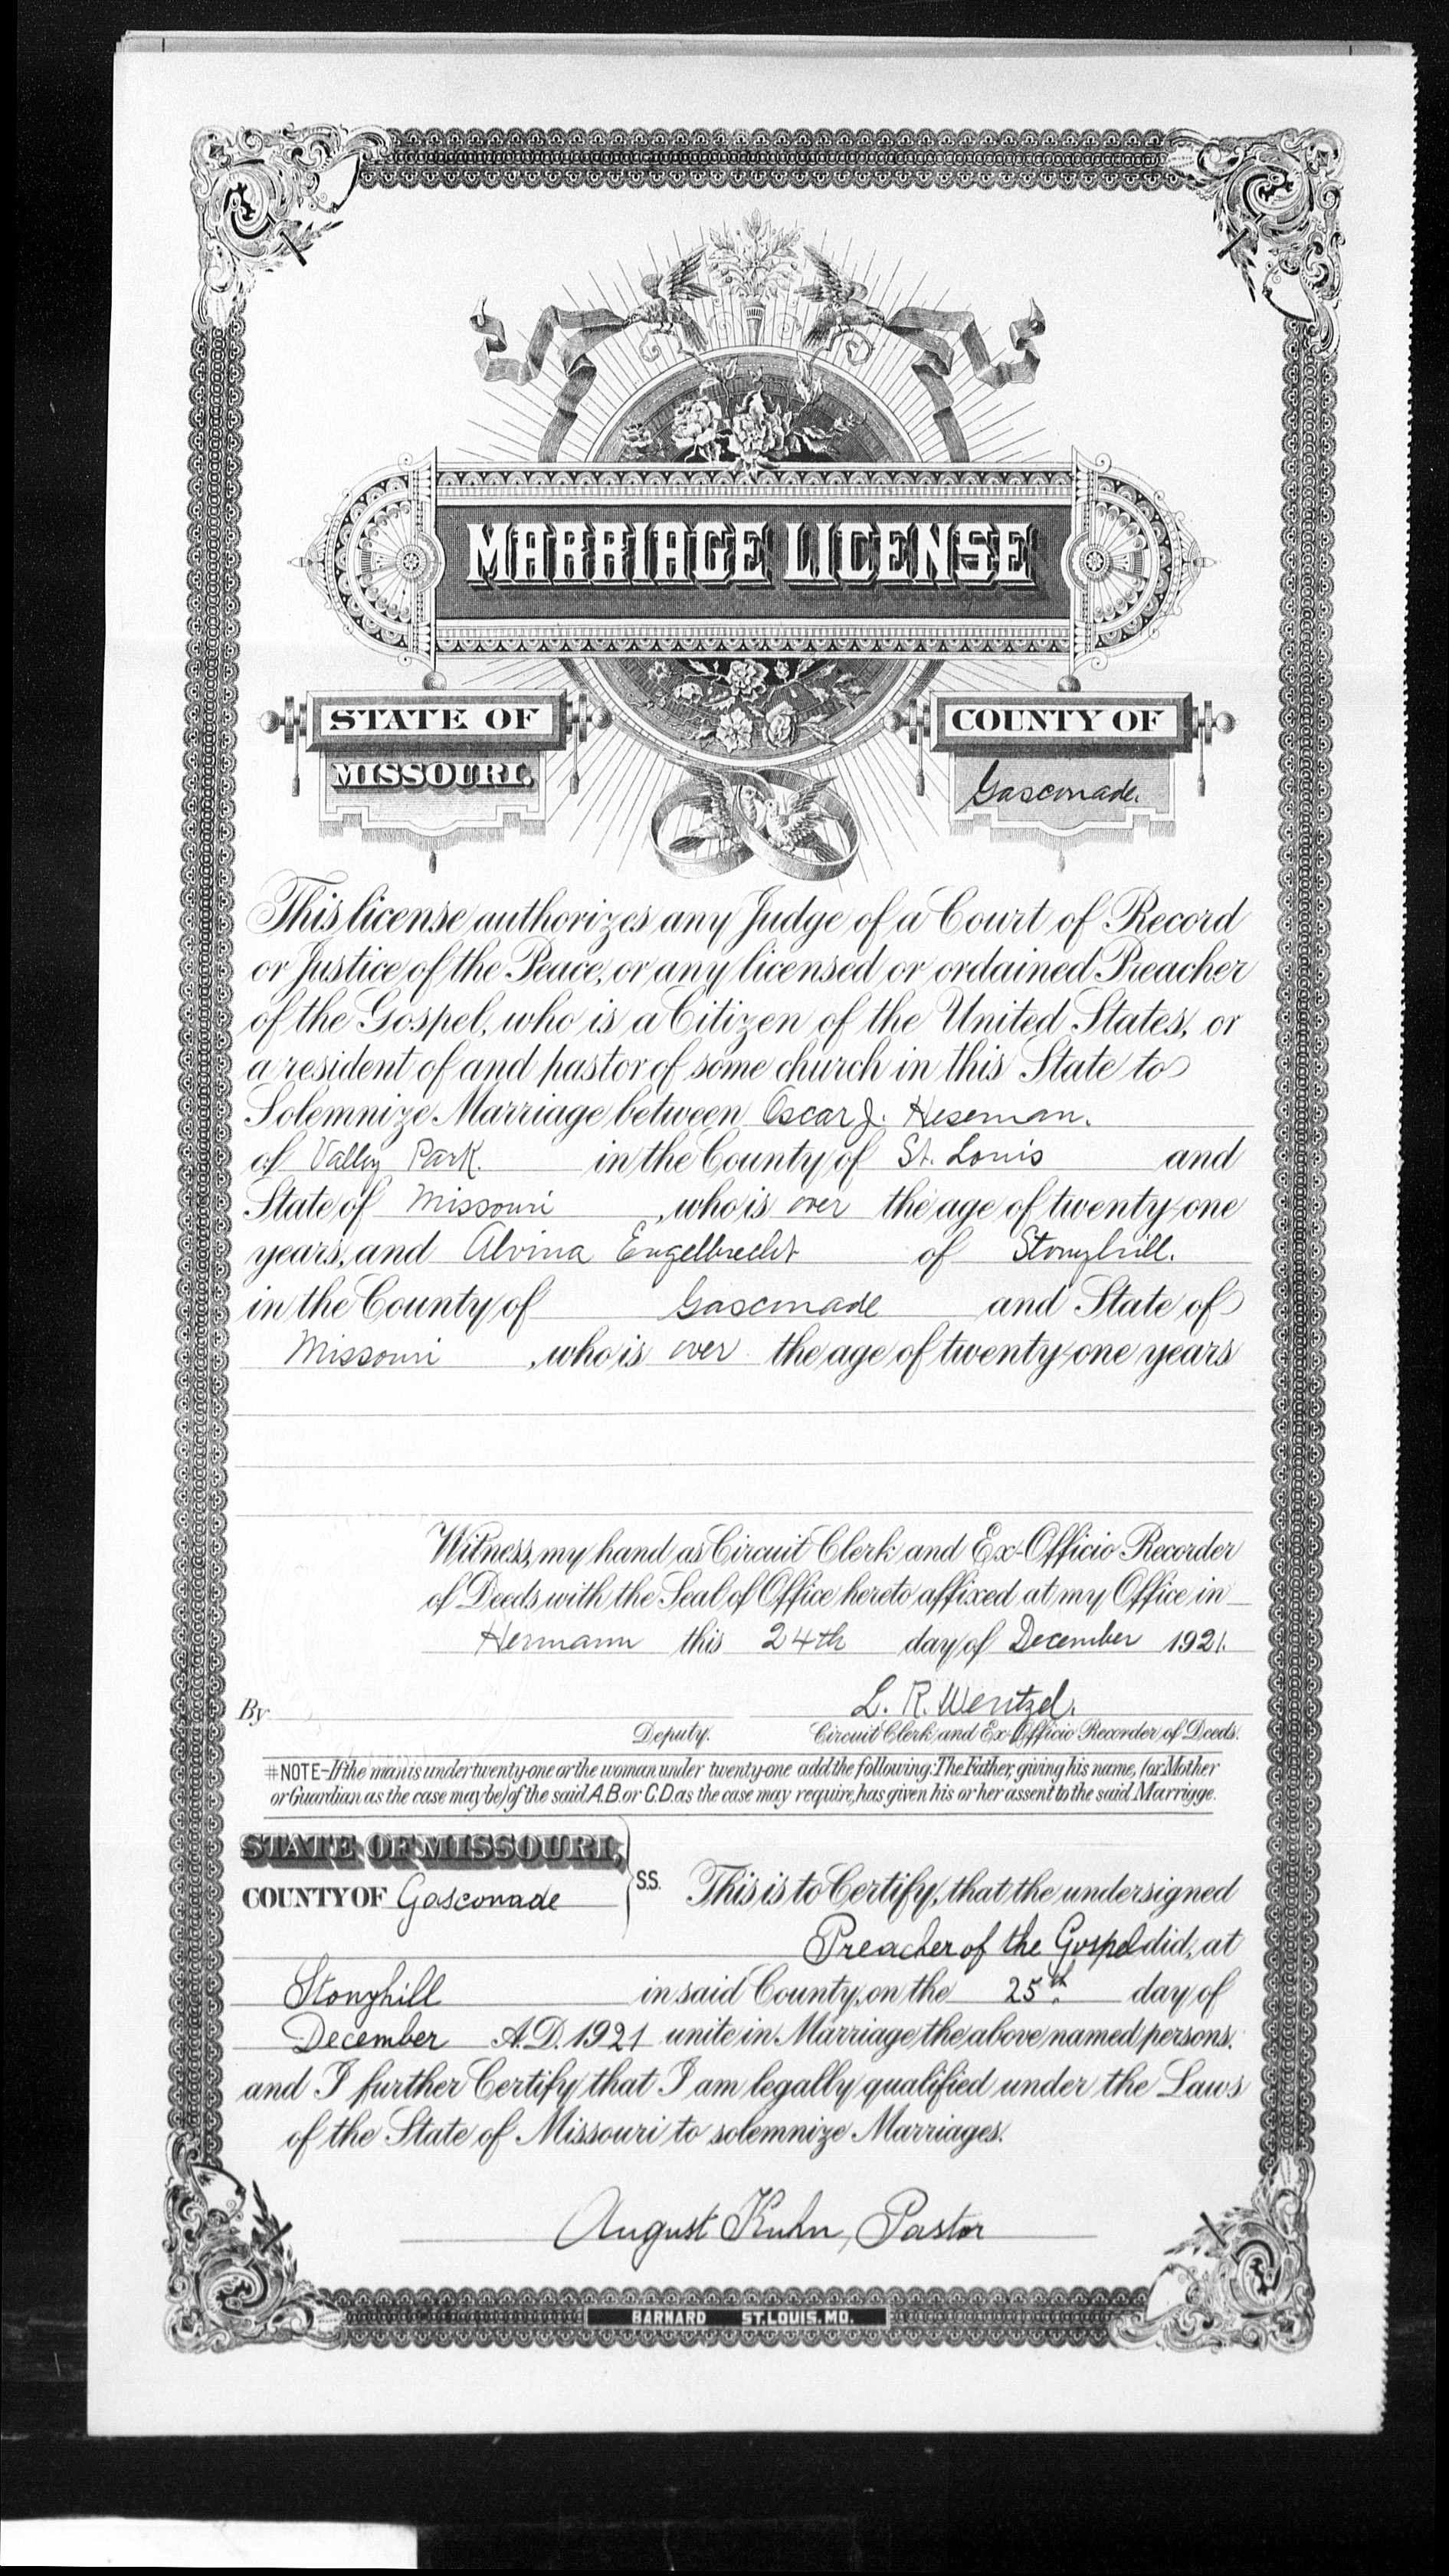 MARRIAGE LICENSE
STATE OF
MISSOURI.
COUNTY OF
Gasconade.
This license authorizes any Judge of a Court of Record
or Justice of the Peace, or any licensed or ordained Preacher
of the Gospel, who is a Citizen of the United States, or
a resident of and pastor of some church in this State to
Solemnize Marriage between Oscar J. Heseman.
of Valley Park. in the County of St. Louis and
State of Missouri, who is over the age of twenty-one
years, and Alvina Engelbrecht of Stonyhill.
in the County of Gasconade and State of
Missouri, who is over the age of twenty-one years
Witness, my hand as Circuit Clerk and Ex-Officio Recorder
of Deeds with the Seal of Office hereto affixed at my Office in
Hermann this 24th day of December 1921.
L. R. Wentzel.
By
Deputy. Circuit Clerk and Ex-Officio Recorder of Deeds.
#NOTE-If the man is under twenty-one or the woman under twenty-one add the following: The Father, giving his name, (or Mother
or Guardian as the case may be) of the said A.B. or C.D. as the case may require, has given his or her assent to the said Marrigge.
STATE OF MISSOURI,
COUNTY OF Gasconade S.S. This is to Certify, that the undersigned
Preacher of the Gospel did, at
Stonyhill in said County, on the 25th. day of
December A.D. 1921 unite in Marriage the above named persons.
and I further Certify that I am legally qualified under the Laws
of the State of Missouri to solemnize Marriages.
August Kuhn, Pastor
BARNARD ST. LOUIS, MO.